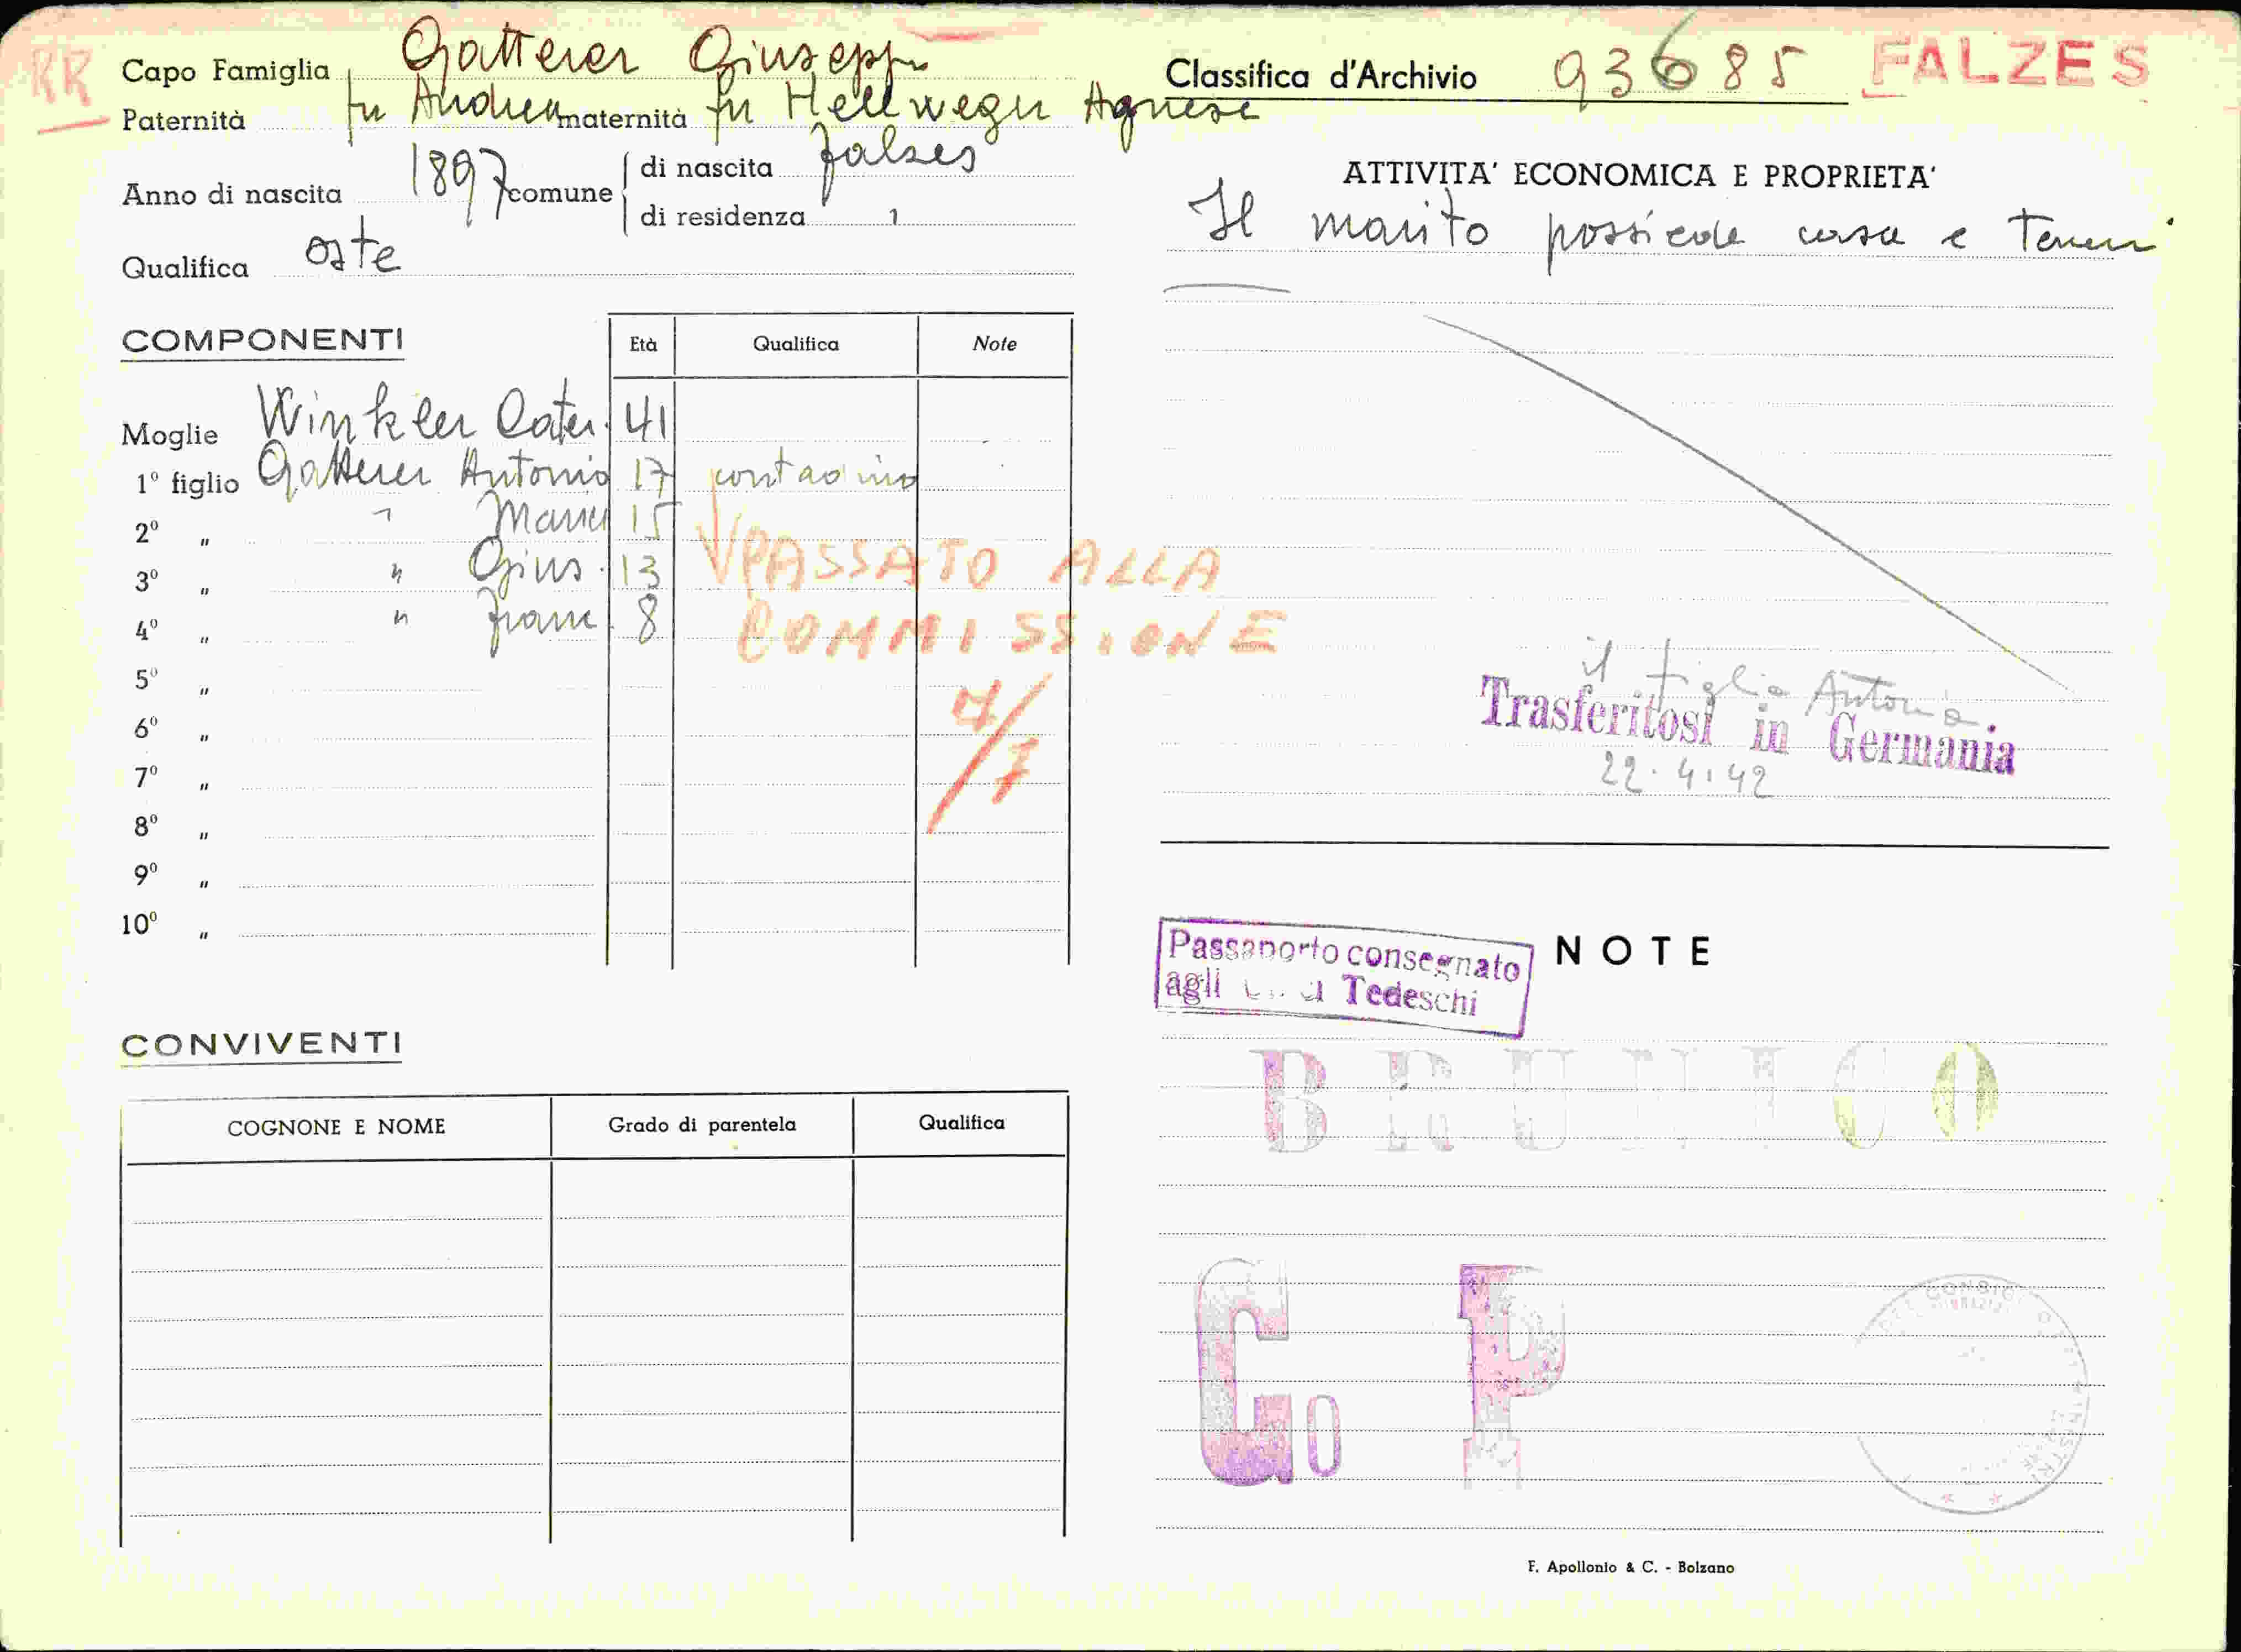 RR
Capo Famiglia Gatterer Giuseppe
Classifica d'Archivio 93685 FALZES
Paternità fu Andrea maternità fu Hellweger Agnese
Anno di nascita 1897 comune di nascita Falzes
di residenza "
Qualifica oste
ATTIVITA' ECONOMICA E PROPRIETA'
Il marito possiede casa e terreni
COMPONENTI Età Qualifica Note
Moglie Winkler Cater. 41
1º figlio Gatterer Antonio 17 contadino
2º " " Maria 15
3º " " Gius. 13
4º " " Franc. 8
PASSATO ALLA
COMMISSIONE
5º "
6º "
7º "
8º "
9º "
10º "
il figlio Antonio
Trasferitosi in Germania
22.4.42
NOTE
Passaporto consegnato
agli Tedeschi
BRUNICO
CONVIVENTI
COGNONE E NOME Grado di parentela Qualifica
Go P
F. Apollonio & C. - Bolzano